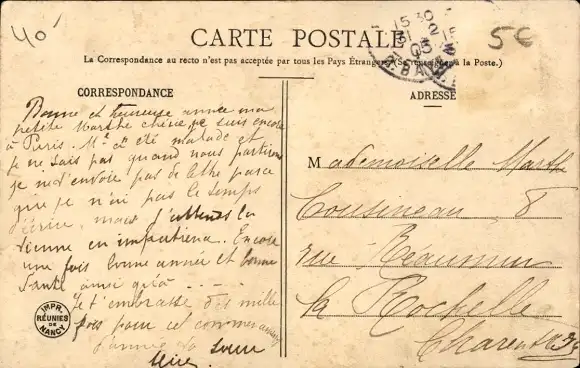 40'
5c
CARTE POSTALE
La Correspondance au recto n'est pas acceptée par tous les Pays Étrangers (Se renseigner à la Poste.)
CORRESPONDANCE
Bonne et heureuse année ma
petite Marthe chérie je suis encore
à Paris. Mr a été malade et
je ne sais pas quand nous partirons
je ne t'envoie pas de lettre parce
que je n'ai pas le temps
d'écrire, mais j'attends la
tienne en impatience. Encore
une fois bonne année et bonne
santé ainsi qu'à - - - -
je t'embrasse des mille
fois pour ce
d'année ta sœur
IMPR.
RÉUNIES
DE
NANCY
ADRESSE
Mademoiselle Marthe
Cousineau 8
rue Réaumur
la Rochelle
Charente
15
31
05